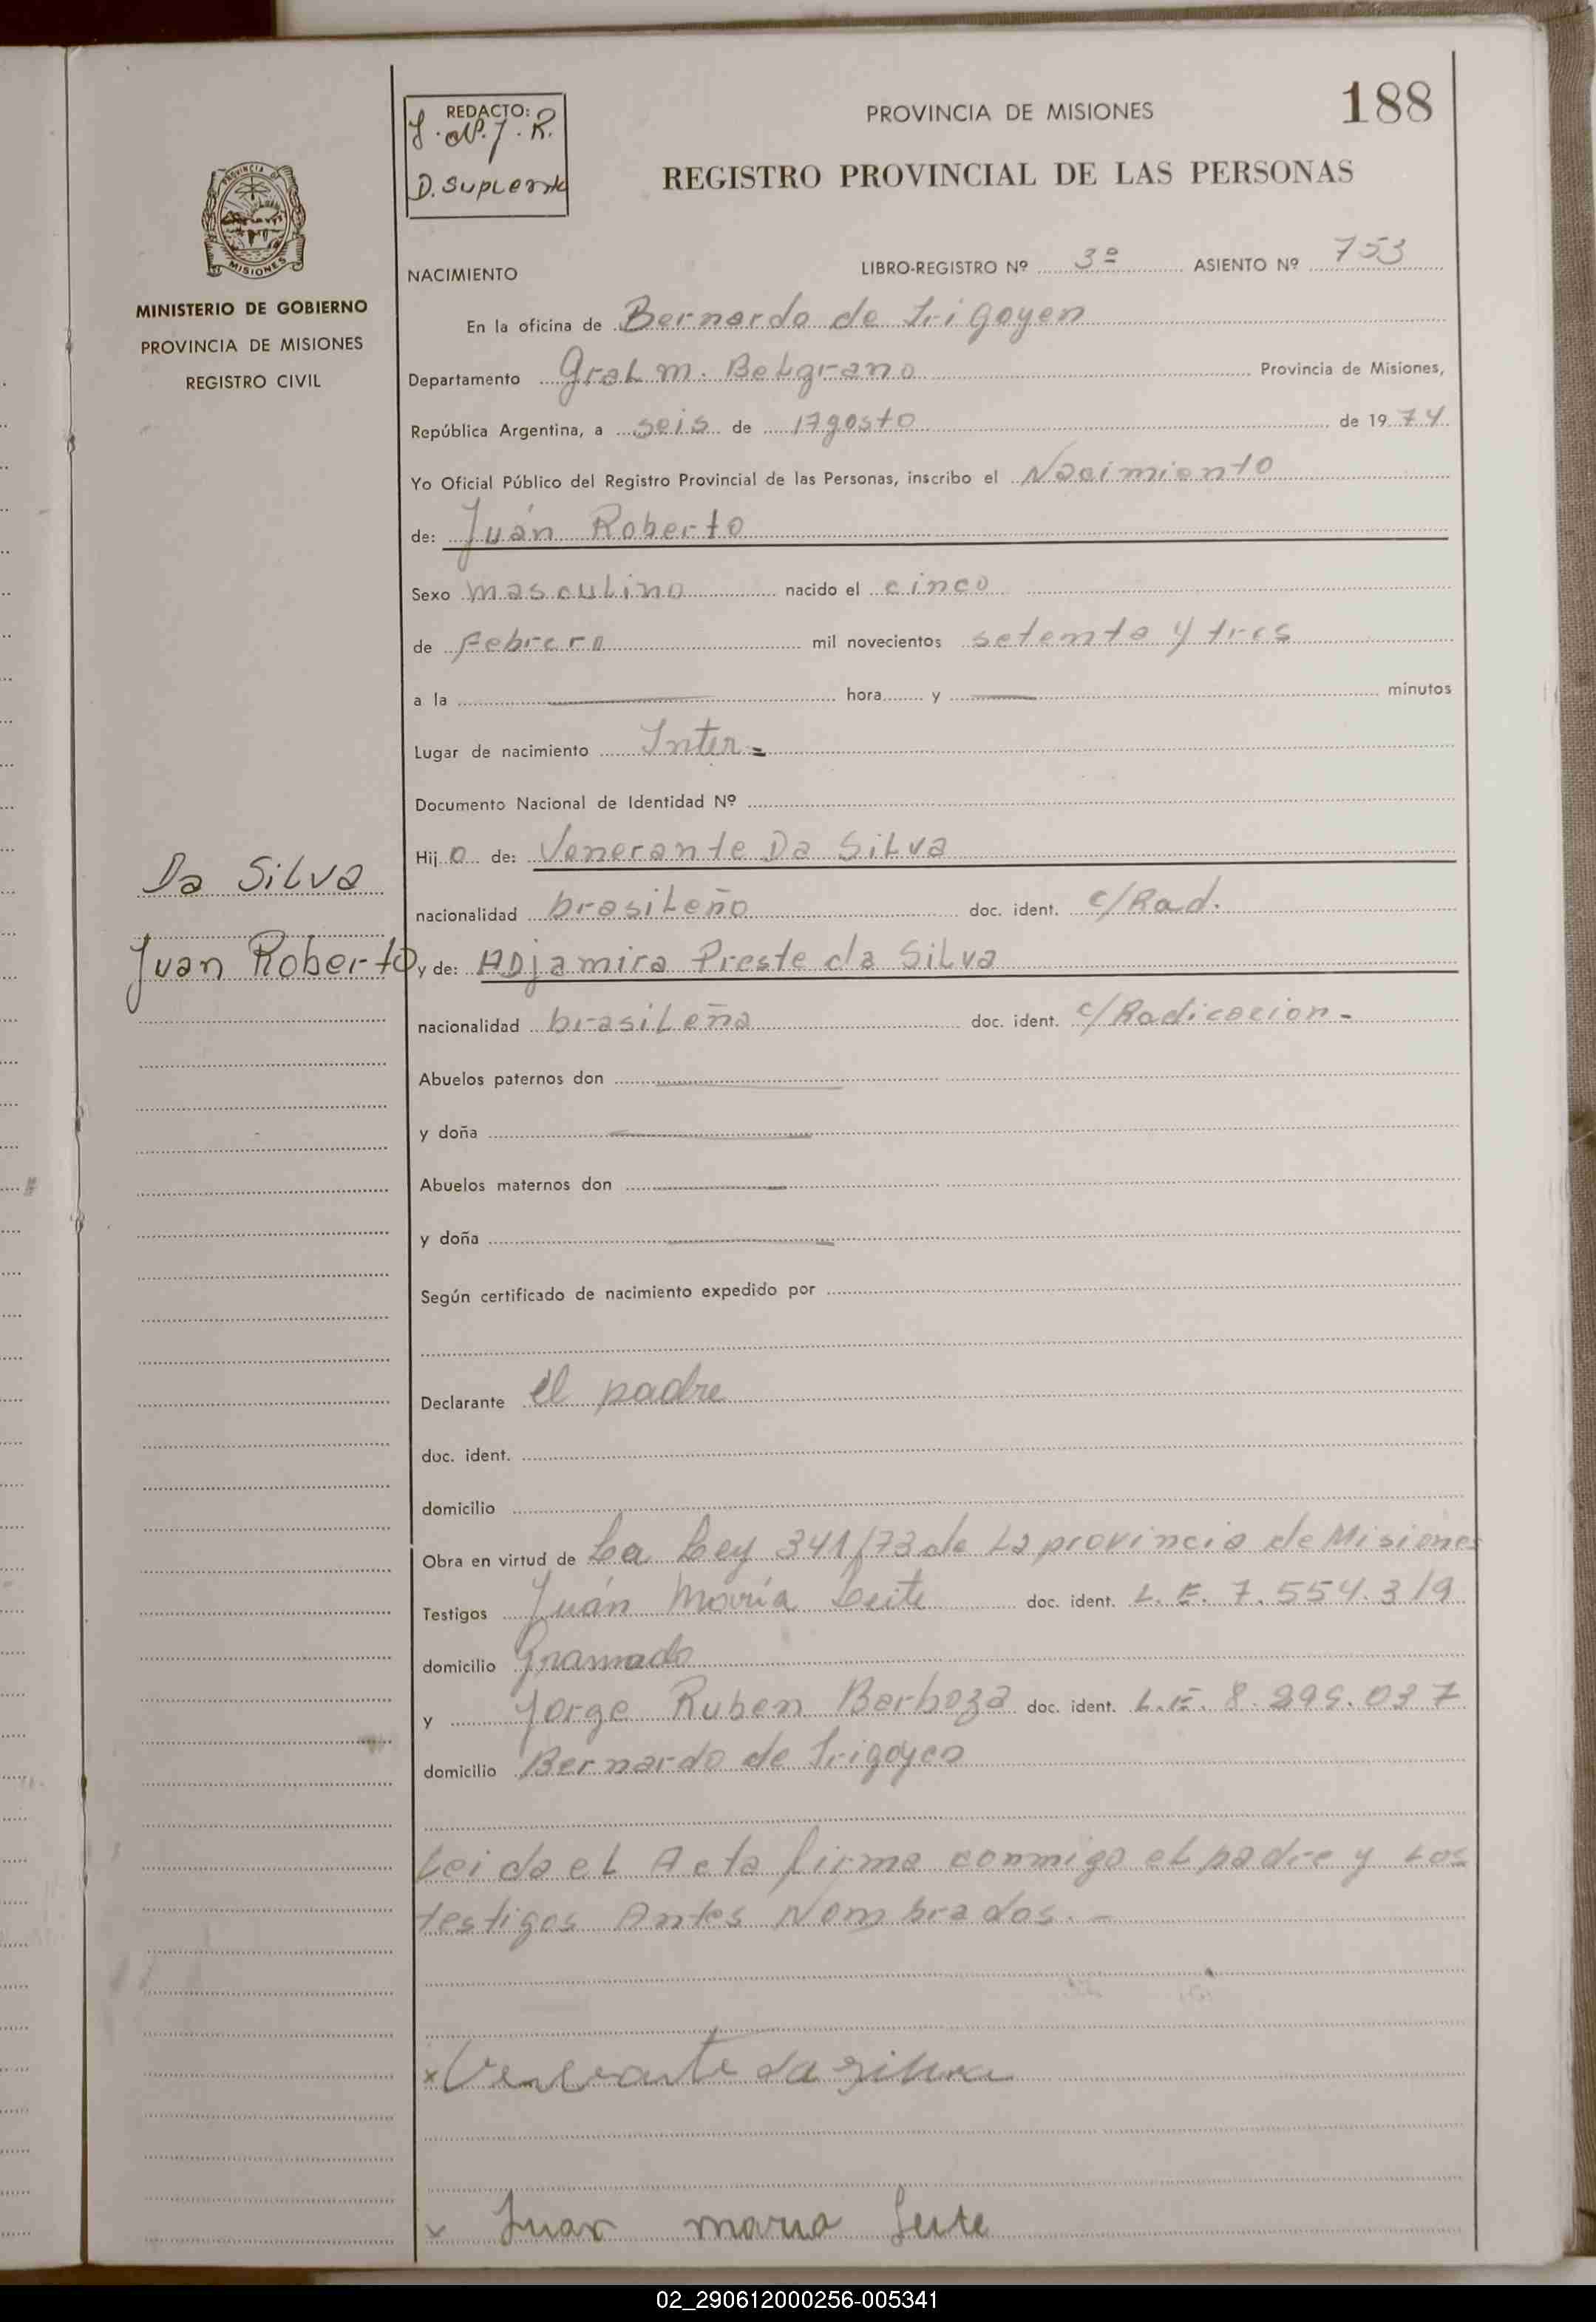 188
REDACTO:
D. Suplente
PROVINCIA DE MISIONES
REGISTRO PROVINCIAL DE LAS PERSONAS
PROVINCIA DE
MISIONES
MINISTERIO DE GOBIERNO
PROVINCIA DE MISIONES
REGISTRO CIVIL
NACIMIENTO
LIBRO-REGISTRO Nº 3º ASIENTO Nº 753
En la oficina de Bernardo de Irigoyen
Departamento Gral m. Belgrano Provincia de Misiones,
República Argentina, a seis de Agosto de 1974
Yo Oficial Público del Registro Provincial de las Personas, inscribo el Nacimiento
de: Juán Roberto
Sexo masculino nacido el cinco
de Febrero mil novecientos setenta y tres
a la hora y minutos
Lugar de nacimiento Inter.=
Documento Nacional de Identidad Nº
Hijo de: Venerante Da Silva
Da Silva
nacionalidad brasileño doc. ident. c/Rad.
Juan Roberto
y de: ADjamira Preste da Silva
nacionalidad brasileña doc. ident. c/Radicacion -
Abuelos paternos don
y doña
Abuelos maternos don
y doña
Según certificado de nacimiento expedido por
Declarante el padre
doc. ident.
domicilio
Obra en virtud de La Ley 341/73 de La provincia de Misiones
Testigos Juán María Leite doc. ident. L. E. 7.554.319
domicilio Gramado
y Jorge Ruben Barboza doc. ident. L.E. 8.295.037
domicilio Bernardo de Irigoyen
Leida el Acta firma conmigo el padre y Los
testigos Antes Nombrados. -
x Venerante da silva
x Juan maria Leite
02_290612000256-005341